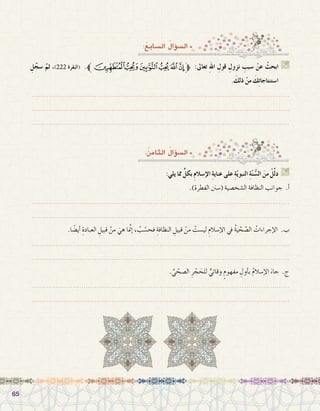 السؤال السابع:
ابحثْ عنْ سببِ نزولِ قولِ اللهِ تعالى: ﴿ إِنَّ اللَّهَ يُحِبُّ التَّوَّابِينَ وَيُحِبُّ الْمُتَطَهِّرِينَ ﴾. (البقرة 222)، ثمَّ سجّلْ
استنتاجاتكَ منْ ذلكَ.
السؤال الثامن:
دلّلْ منَ السُّنّةِ النبويّةِ على عنايةِ الإسلامِ بكلٍّ مما يلي:
أ. جوانب النظافة الشخصية (سنن الفطرة).
ب. الإجراءاتُ الصِّحّيّةُ في الإسلامِ ليستْ منْ قبيلِ النظافة فحسْبُ، إنَّما هيَ منْ قبيلِ العبادة أيضًا.
ج. جاءَ الإسلامُ بأولِ مفهومٍ وقائيٍّ للحَجْرِ الصحيِّ.
65